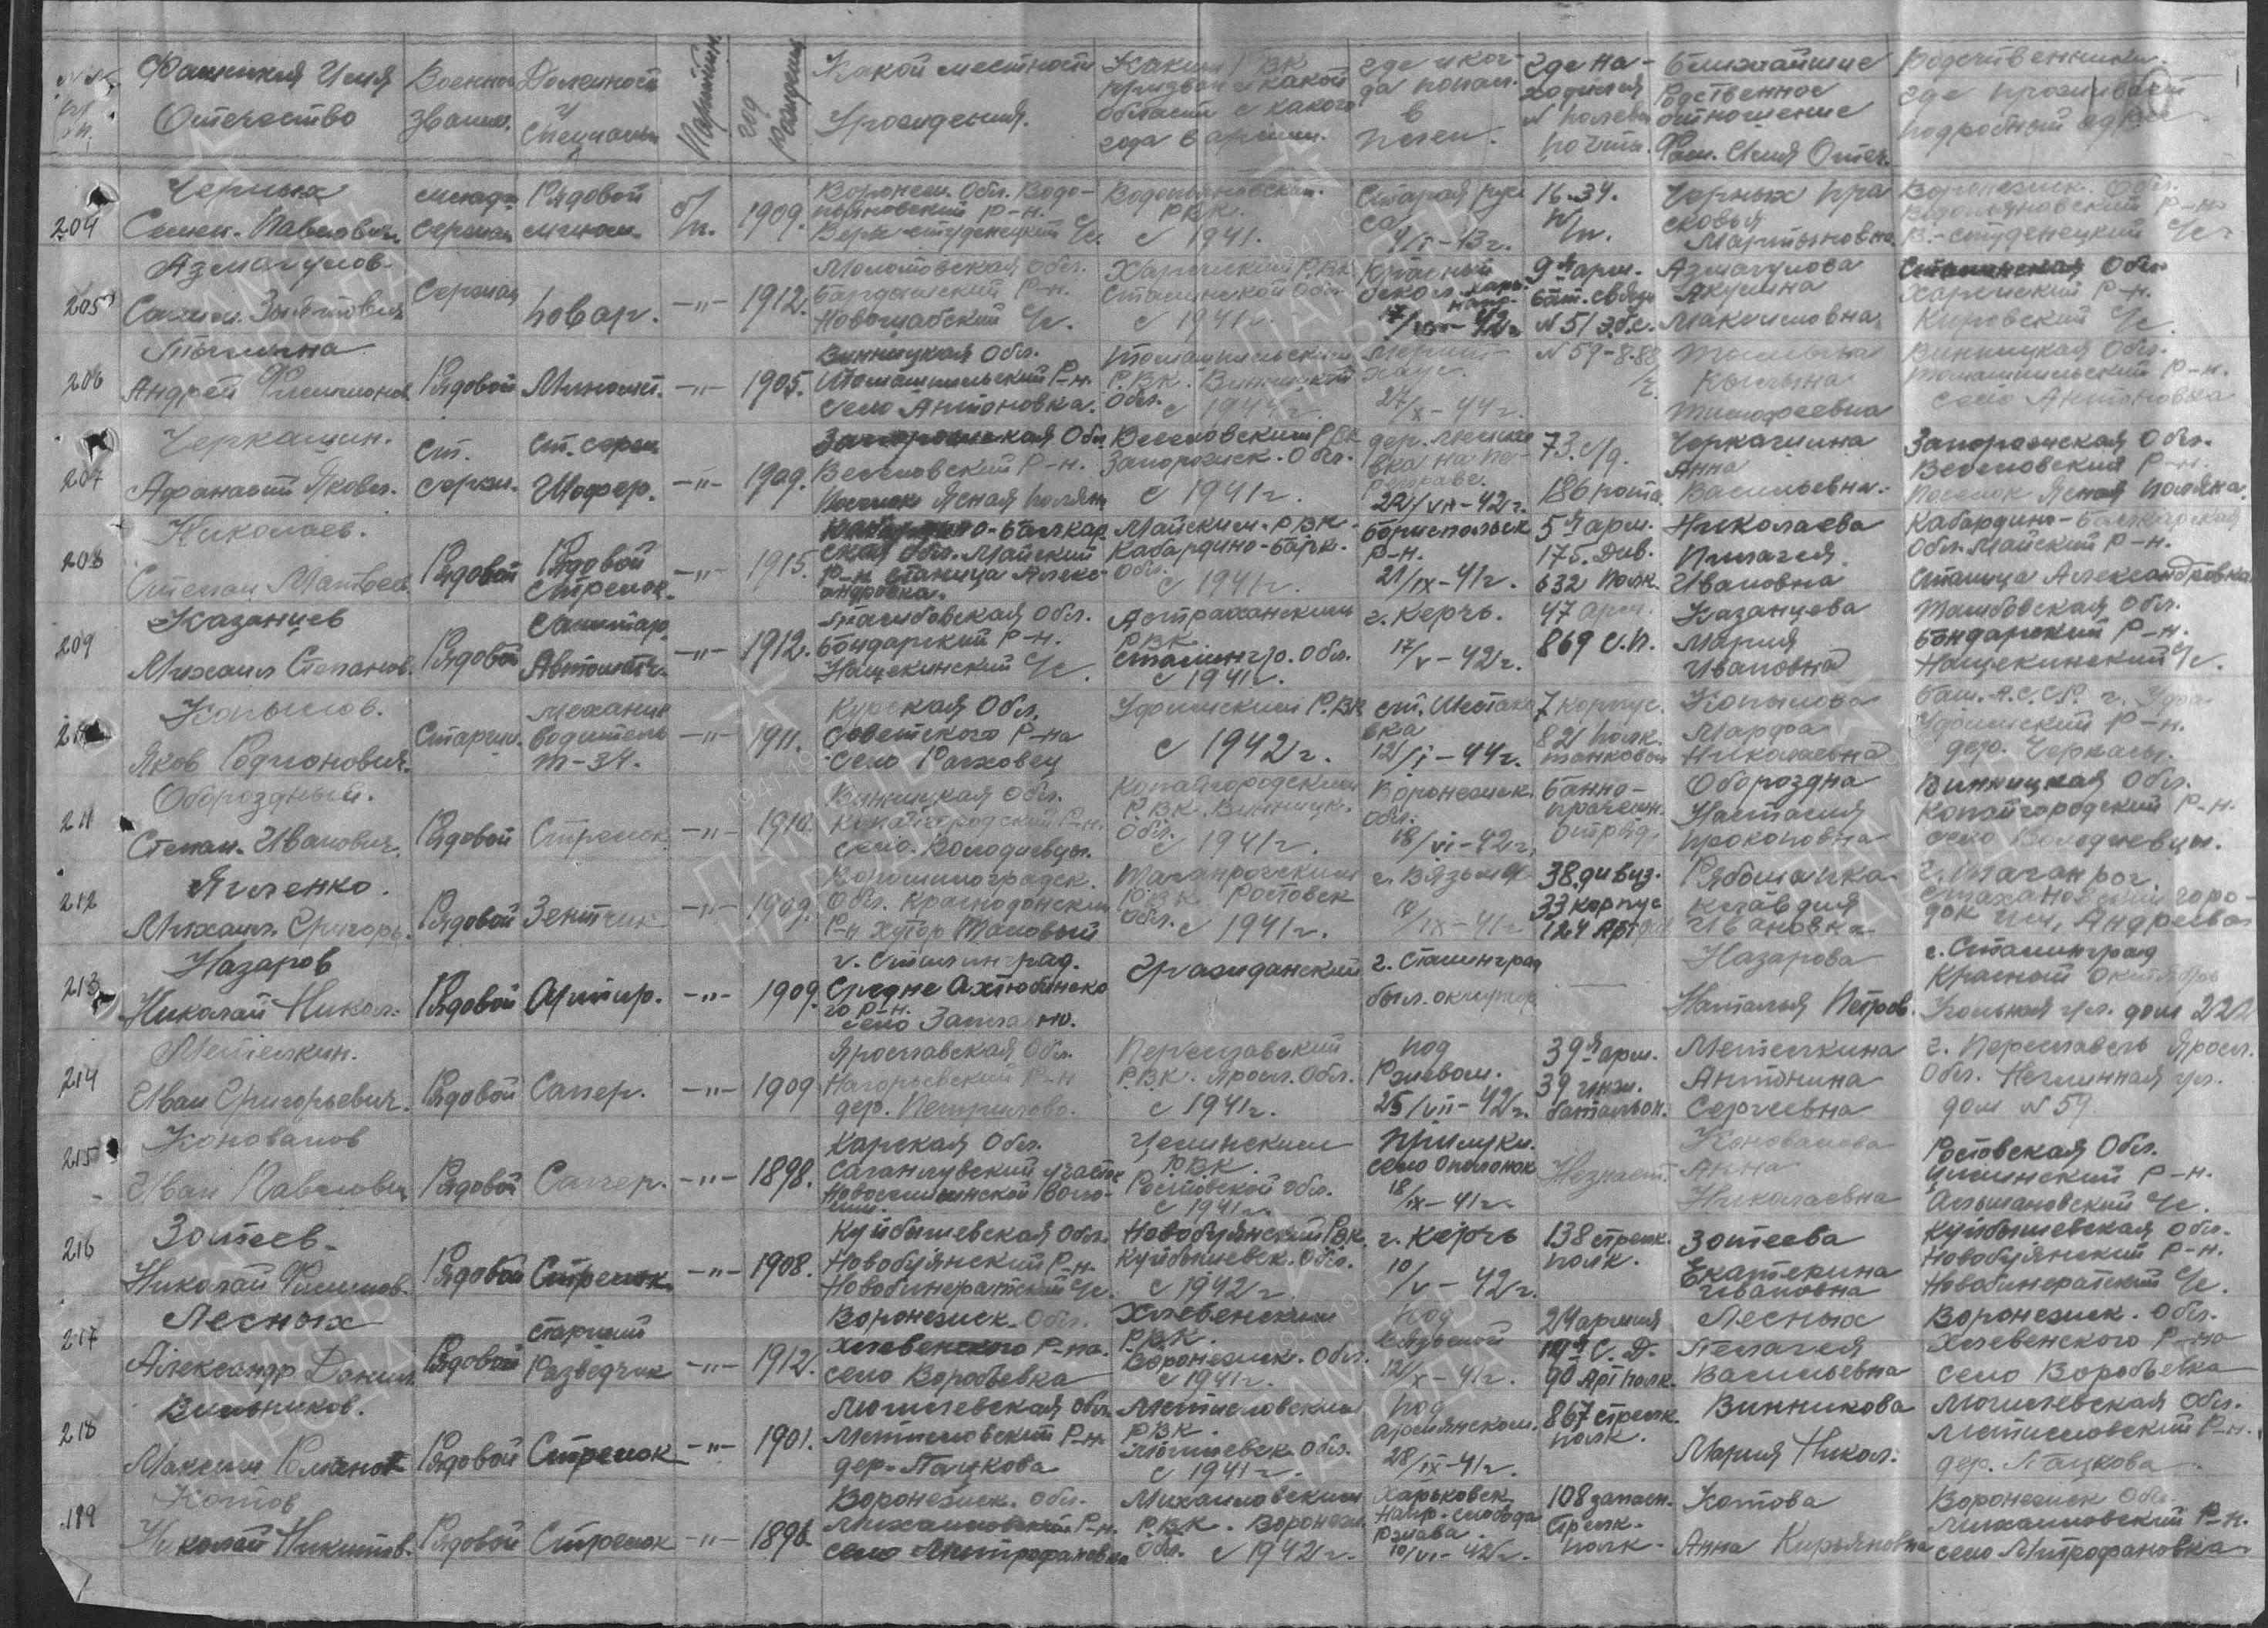 Фамилия Имя Отчество
Военное звание.
Должность и Специальн.
Партийн.
год рождения
Какой местности Урождения.
Каким РВК призван и какой области с какого года в армии.
где и когда попал в плен.
где находился № полевой почты.
Ближайшие Родственное отношение Фам. Имя Отеч.
Родственники. где проживает подробный адрес.
204
Черных
Семен. Павлович.
Рядовой
б/п.
1909.
Воронеж. Обл. Водопьяновский Р-н.
Верх-студенецкий с/с.
Водопьяновским. РВК.
с 1941.
Старая Русса
16.34. п/п.
Черных Прасковья Мартыновна
Воронежск. Обл. Водопьяновский Р-н.
В.-студенецкий с/с
205
Азмагулов.
Сержан
Повар.
—"—
1912.
Молотовская Обл. Бардымский Р-н.
с/с.
Харцизским Р.В.К. Сталинской Обл.
с 1941г.
9я арм. бат. связи
Азмагулова Акулина Максимовна.
Сталинская Обл. Р-н.
Кировский с/с.
206
Андрей Филимонов.
Рядовой
Миномет.
—"—
1905.
Винницкая Обл.
Томашпильский Р-н.
село Антоновка.
Томашпильским Р.В.К. Винницкой Обл.
с 1944г.
27/X-44г.
№ 59-8-88
Тимофеевна
Винницкая Обл.
Томашпильский Р-н.
село Антоновка
207
Черкашин.
Афанасий Яковл.
ст. сержан.
ст. сержан
Шофер.
—"—
1909.
Запорожская Обл
Веселовский Р-н.
Поселок Ясная поляна
Веселовским РВК
Запорожск. Обл.
с 1941г.
на переправе.
22/VII-42г.
73. с/д.
186 рота
Черкашина Анна Васильевна.
Запорожская Обл.
Веселовский Р-н.
поселок Ясная поляна.
208
Николаев.
Степан Матвеев.
Рядовой
Рядовой Стрелок.
—"—
1915.
Кабардино-Балкарская Обл. Майский Р-н станица Александровка.
Майским. РВК. Кабардино-Балк. Обл.
с 1941г.
Бориспольск Р-н.
21/IX-41г.
5я арм.
175. Див.
632 полк.
Николаева Пелагея Ивановна
Кабардино-Балкарская Обл. Майский Р-н.
Станица Александровка
209
Казанцев
Михаил Степанов.
Рядовой
Санитар Автоматч.
—"—
1912.
Тамбовская Обл.
Бондарский Р-н.
Нащекинский с/с.
Астраханским РВК
Сталингр. Обл.
с 1941г.
г. Керчь.
17/V-42г.
47 арм.
869 с.п.
Казанцева Мария Ивановна
Тамбовская Обл.
Бондарский Р-н.
Нащекинский с/с.
Копылов.
Яков Родионович.
Старшин.
механик водитель Т-34.
—"—
1911.
Курская Обл.
Советского Р-на
село Расховец
Уфимским Р.ВК
с 1942г.
ст. Шестаковка
12/I-44г.
7 корпус.
821 полк. танковой
Копылова Марфа Николаевна
Баш. А.С.С.Р. г. Уфа
Уфимский Р-н.
дер. Черкасы.
211
Обороздный.
Степан. Иванович.
Рядовой
Стрелок
—"—
1910.
Винницкая Обл.
Копайгородский Р-н.
село. Володиевцы.
Копайгородским Р.ВК Винницк. Обл.
с 1941г.
Воронежск. Обл.
18/VI-42г.
Банно-прачечн. отряд.
Оборозна Настасия Прокоповна
Винницкая Обл.
Копайгородский Р-н.
село Володиевцы.
212
Ягленко.
Михаил. Григорь.
Рядовой
Зенитчик
—"—
1909.
Ворошиловградск. Обл. Краснодонский Р-н хутор Таловый
Таганрогским Р.ВК Ростовск Обл.
с 1941г.
г. Вязьма
38.дивиз.
33 корпус
124 Арт
Клавдия Ивановна
г. Таганрог.
Стахановский городок им. Андреева
213
Назаров
Николай Никол.
Рядовой
Артил.
—"—
1909.
г. Сталинград.
Средне Ахтюбинского Р-н.
Гражданский
г. Сталинград
был. окружен
—
Назарова
Наталья Петров.
г. Сталинград
Красный Октябрь
Угольная ул. дом 222
214
Метелкин.
Иван Григорьевич.
Рядовой
Сапер.
—"—
1909
Ярославская Обл.
Нагорьевский Р-н
дер. Петрилово.
Переславский Р.ВК. Яросл. Обл.
с 1941г.
под Ржевом.
25/VII-42г.
39я арм.
39 инж. батальон.
Метелкина Антонина Сергеевна
г. Переславль Яросл. Обл. Неглинная ул.
дом №59
215
Коновалов
Иван Павлович
Рядовой
Сапер.
—"—
1898.
Карская Обл.
Новоселимской Волости.
Целинским РВК.
Ростовской Обл.
с 1941г.
Прилуки.
18/IX-41г.
Незнает.
Коновалова Анна Николаевна
Ростовская Обл.
Целинский Р-н.
с/с.
216
Зотеев.
Николай Филипов.
Рядовой
Стрелок
—"—
1908.
Куйбышевская Обл.
Новобуянский Р-н.
Новобинератский с/с.
Новобуянский РВК
Куйбышевск. Обл.
с 1942г
г. Керчь
10/V-42г.
138 стрелк. полк.
Зотеева
Екатерина Ивановна
Куйбышевская Обл.
Новобуянский Р-н.
Новобинератский с/с.
217
Лесных
Александр Данил.
Рядовой
Старший Разведчик
—"—
1912.
Воронежск. Обл.
Хлевенского Р-на.
село Воробьевка
Хлевенским РВК.
Воронежск. Обл.
с 1941г.
под Вязьмой
12/X-41г.
24 армия
19я С.Д.
90 Арт полк.
Лесных Пелагея Васильевна
Воронежск. Обл.
Хлевенского Р-на
село Воробьевка
218
Винников.
Максим
Рядовой
Стрелок
—"—
1901.
Могилевская Обл.
Мстиславский Р-н.
дер. Пацкова
Мстиславским РВК.
Могилевск. Обл.
с 1941г.
под Армянском.
28/IX-41г.
867 стрелк. полк.
Винникова
Мария Никол.
Могилевская Обл.
Мстиславский Р-н.
дер. Пацкова
189
Котов
Николай Никитов.
Рядовой
Стрелок
—"—
1898
Воронежск. Обл.
Михайловский Р-н.
село Митрофановка
Михайловским РВК. Воронежск. Обл.
с 1942г.
Харьковск Напр. слобода
10/VI-42г.
108 запасн. стрелк. полк.
Котова
Анна Кирьяновна
Воронежск Обл.
Михайловский Р-н.
село Митрофановка
ПАМЯТЬ НАРОДА
1941-1945